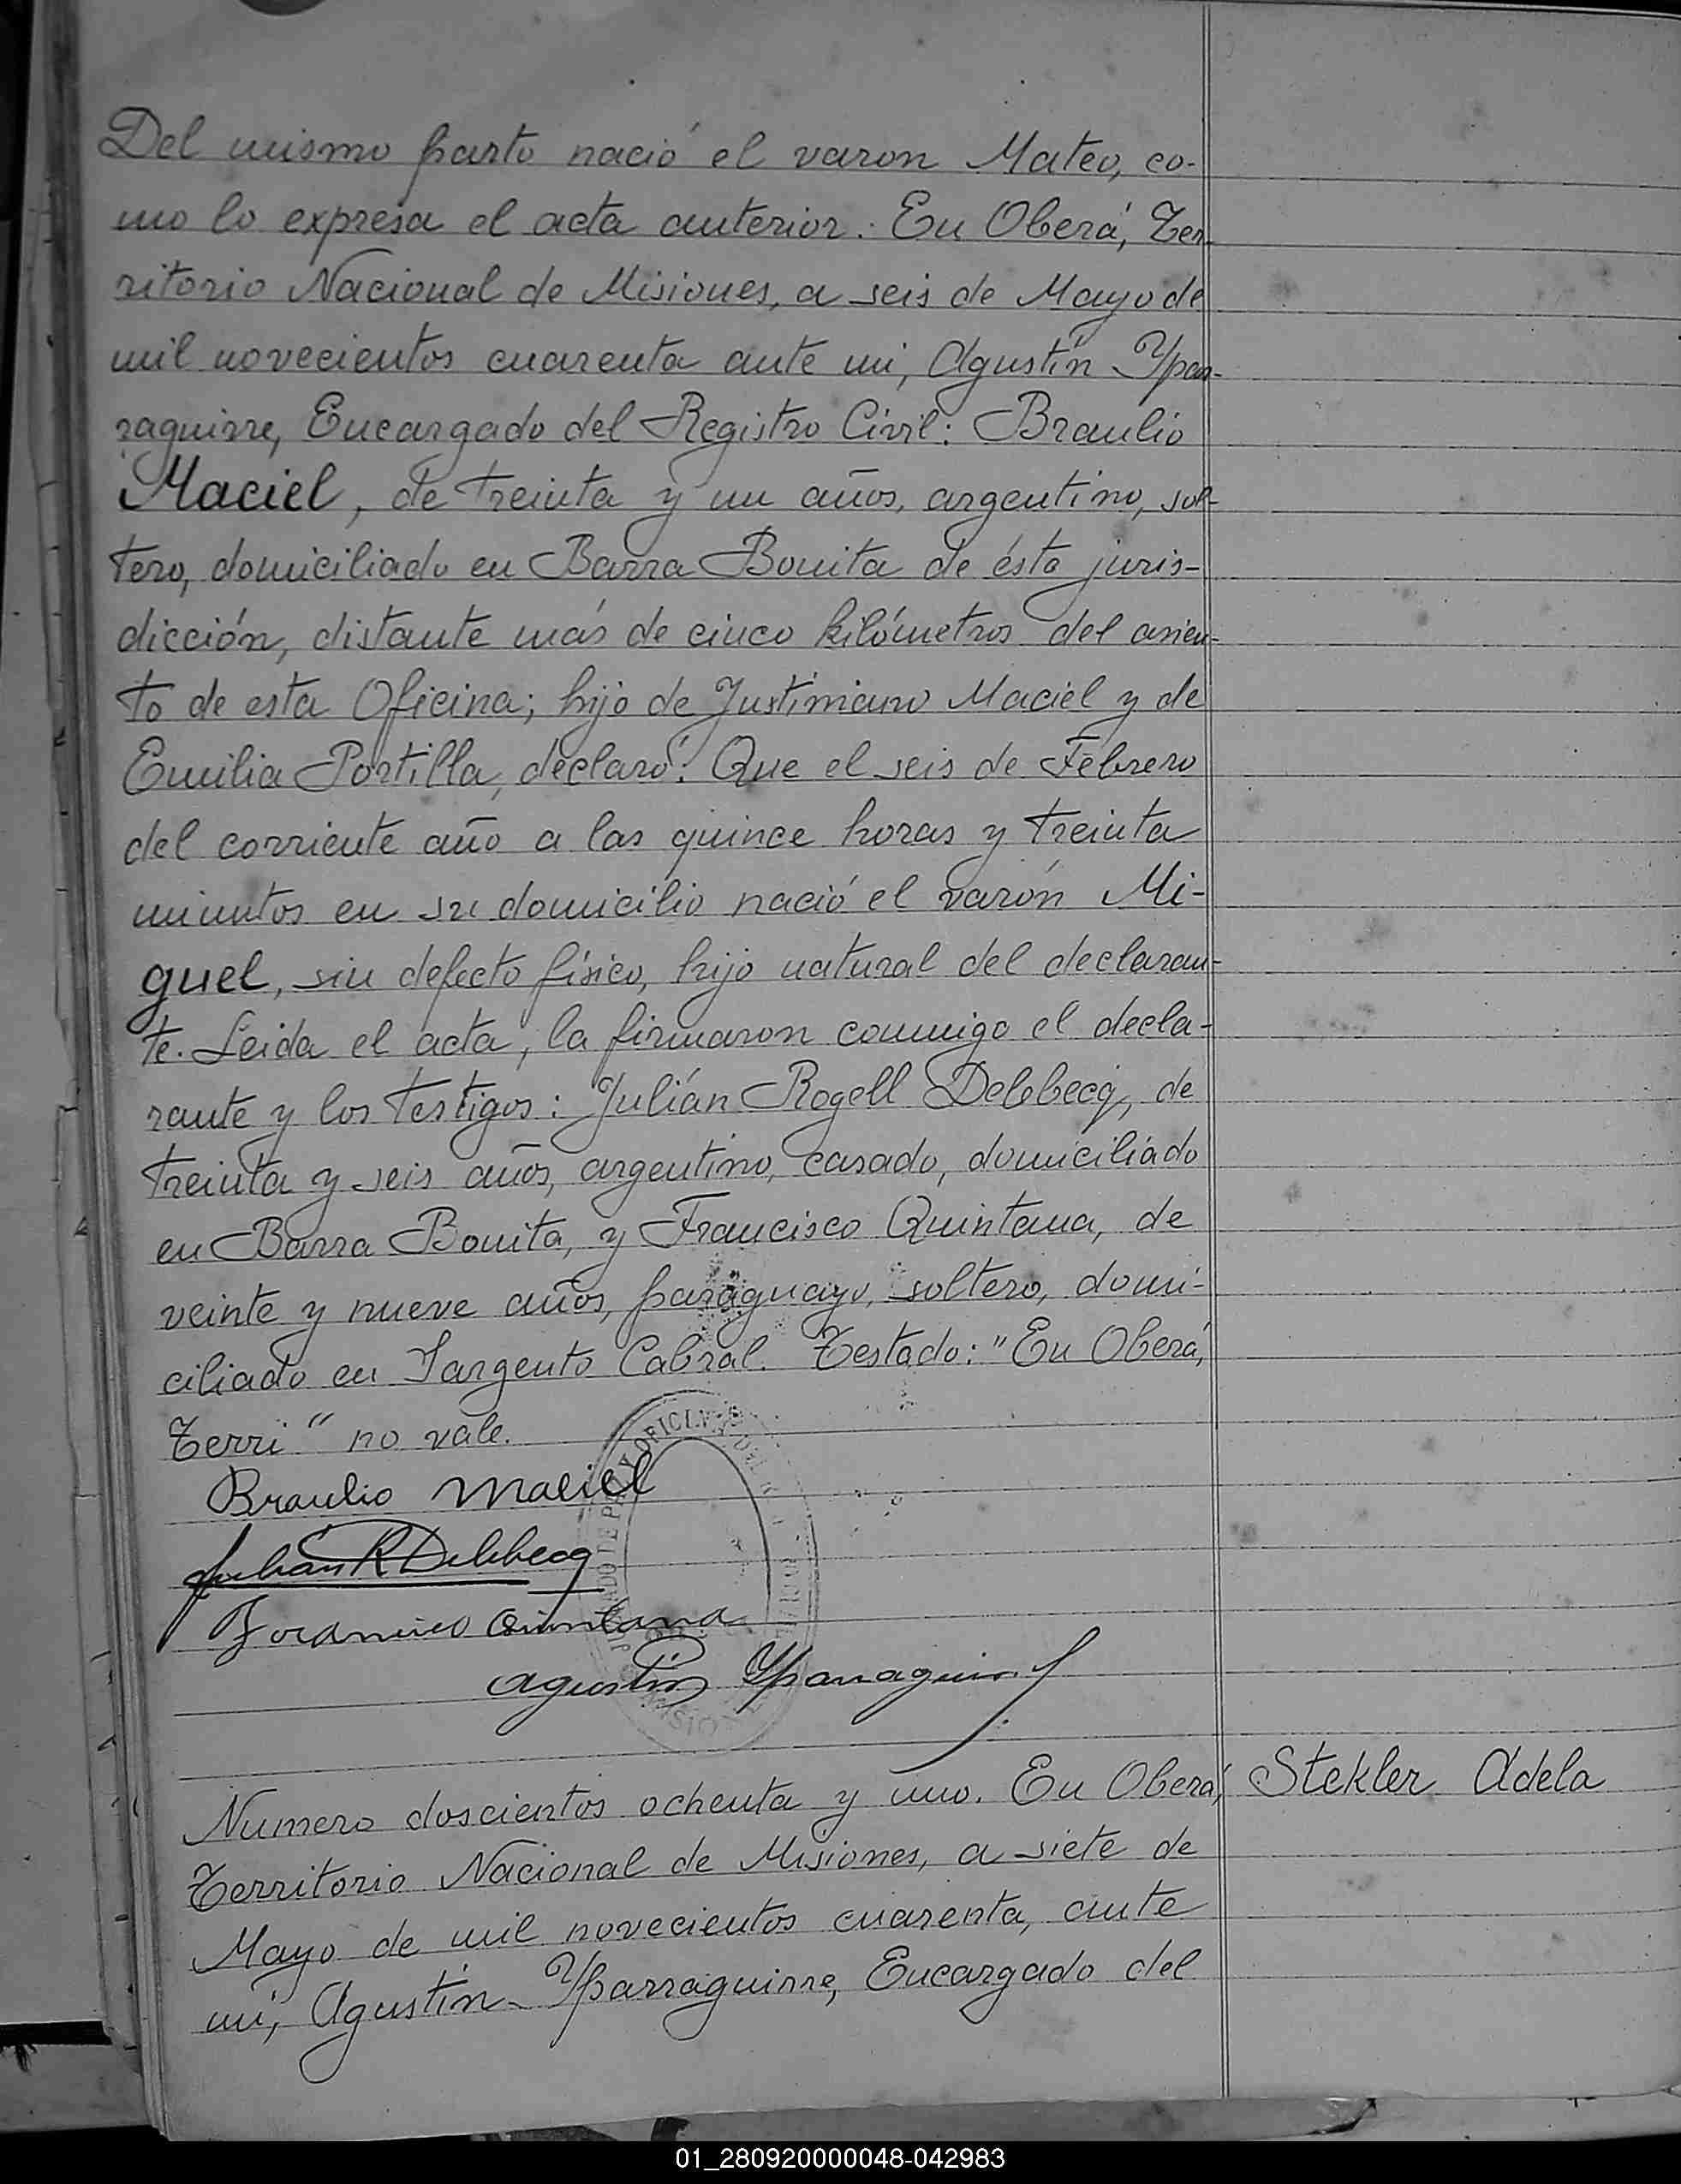 Del mismo parto nació el varon Mateo, co-
mo lo expresa el acta anterior. En Oberá, Ter-
ritorio Nacional de Misiones, a seis de Mayo de
mil novecientos cuarenta ante mi, Agustín Ypar-
raguirre, Encargado del Registro Civil: Braulio
Maciel, de treinta y un años, argentino, sol-
tero, domiciliado en Barra Bonita de ésta juris-
dicción, distante más de cinco kilómetros del asien-
to de esta Oficina; hijo de Justiniano Maciel y de
Emilia Portilla, declaró: Que el seis de Febrero
del corriente año a las quince horas y treinta
minutos en su domicilio nació el varón Mi-
guel, sin defecto físico, hijo natural del declaran-
te. Leida el acta, la firmaron conmigo el decla-
rante y los testigos: Julián Rogell Delebecq, de
treinta y seis años, argentino, casado, domiciliado
en Barra Bonita, y Francisco Quintana, de
veinte y nueve años, paraguayo, soltero, domi-
ciliado en Sargento Cabral. Testado: "En Oberá,
Terri" no vale.
Braulio Maciel
Julián R Delebecq
Francisco Quintana
Agustín Yparraguirre
Numero doscientos ochenta y uno. En Oberá, Stekler Adela
Territorio Nacional de Misiones, a siete de
Mayo de mil novecientos cuarenta, ante
mi, Agustín Yparraguirre, Encargado del
01_280920000048-042983